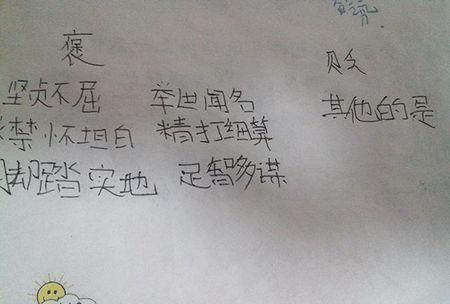 褒 败
坚贞不屈 举世闻名 其他的是
襟怀坦白 精打细算
脚踏实地 足智多谋